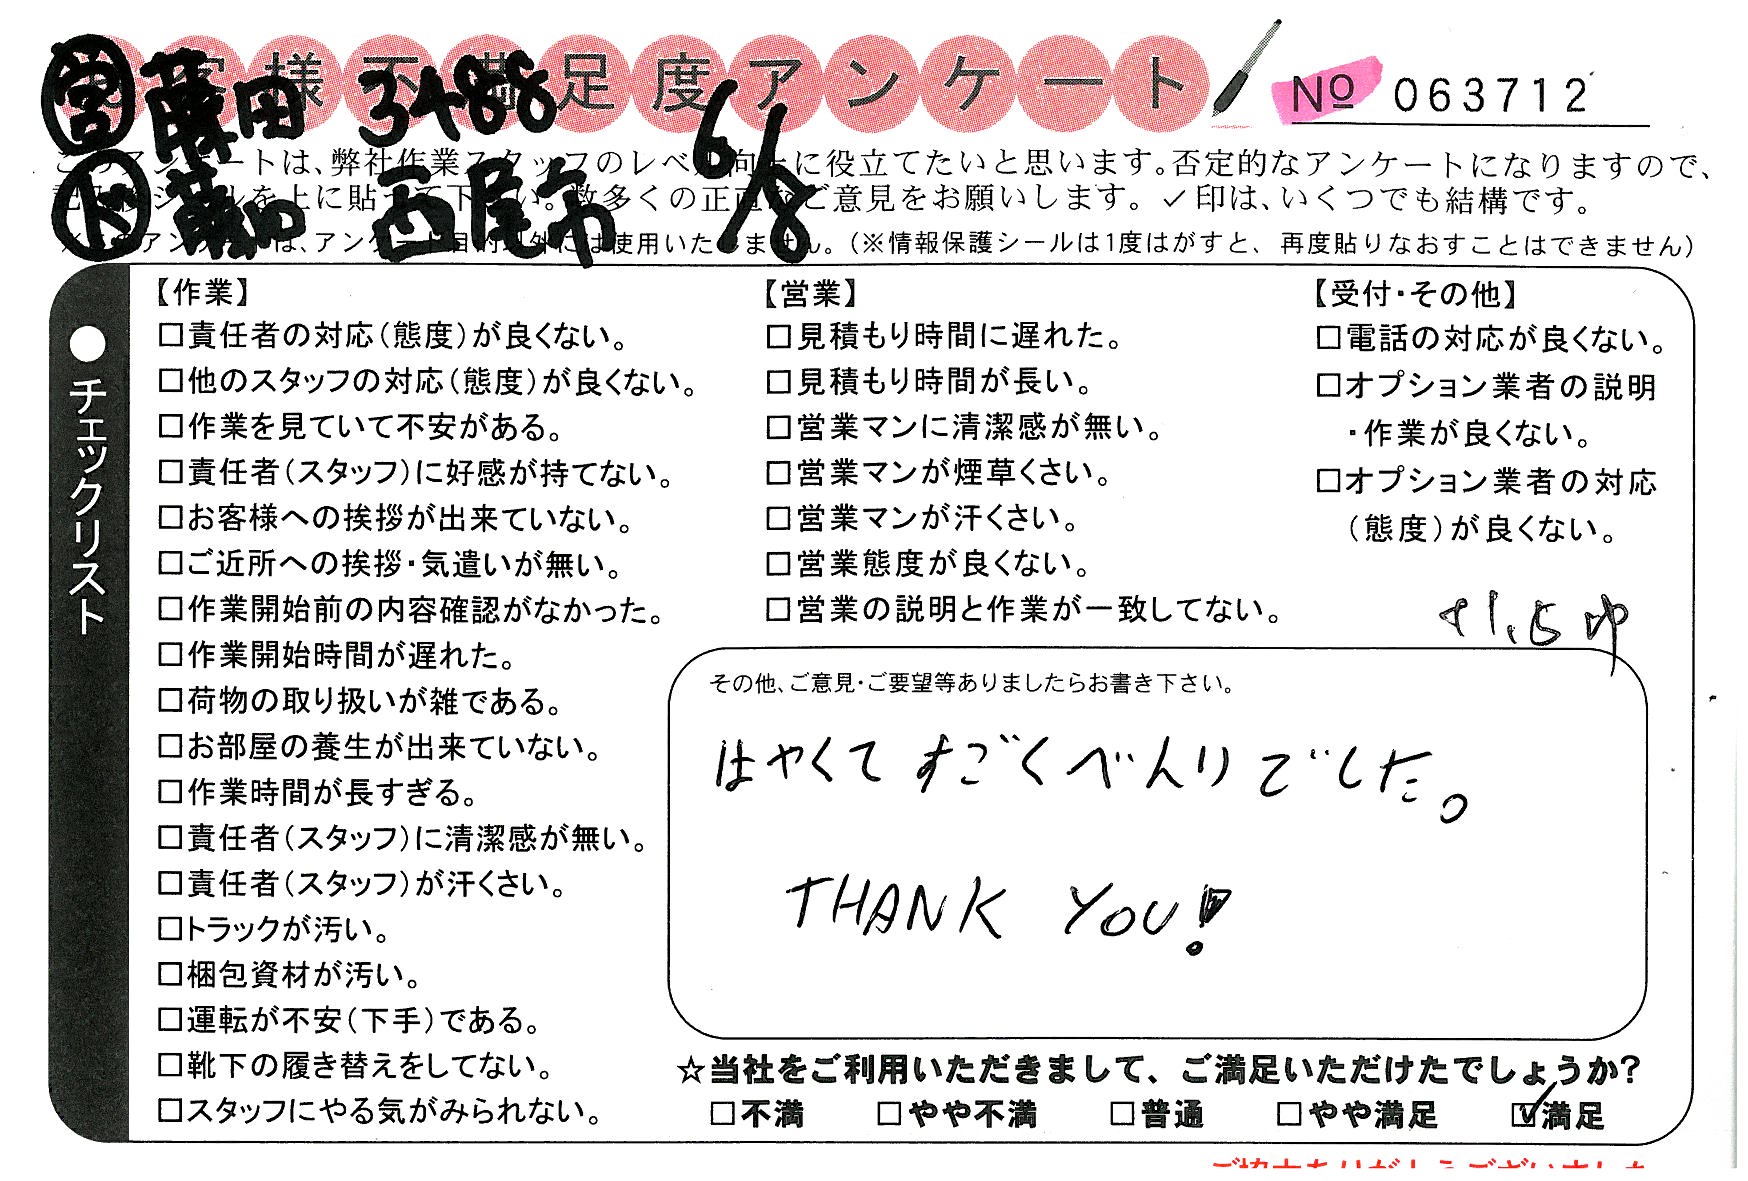 お客様不満足度アンケート
No 063712
営 藤田 3488 6/8
ド 藤田 西尾市 6/8
このアンケートは、弊社作業スタッフのレベル向上に役立てたいと思います。否定的なアンケートになりますので、
シールを上に貼って下さい。数多くの正直なご意見をお願いします。✓印は、いくつでも結構です。
アンケートは、アンケート目的以外には使用いたしません。(※情報保護シールは1度はがすと、再度貼りなおすことはできません)
●チェックリスト
【作業】
□責任者の対応(態度)が良くない。
□他のスタッフの対応(態度)が良くない。
□作業を見ていて不安がある。
□責任者(スタッフ)に好感が持てない。
□お客様への挨拶が出来ていない。
□ご近所への挨拶・気遣いが無い。
□作業開始前の内容確認がなかった。
□作業開始時間が遅れた。
□荷物の取り扱いが雑である。
□お部屋の養生が出来ていない。
□作業時間が長すぎる。
□責任者(スタッフ)に清潔感が無い。
□責任者(スタッフ)が汗くさい。
□トラックが汚い。
□梱包資材が汚い。
□運転が不安(下手)である。
□靴下の履き替えをしてない。
□スタッフにやる気がみられない。
【営業】
□見積もり時間に遅れた。
□見積もり時間が長い。
□営業マンに清潔感が無い。
□営業マンが煙草くさい。
□営業マンが汗くさい。
□営業態度が良くない。
□営業の説明と作業が一致してない。
【受付・その他】
□電話の対応が良くない。
□オプション業者の説明
・作業が良くない。
□オプション業者の対応
(態度)が良くない。
その他、ご意見・ご要望等ありましたらお書き下さい。
はやくてすごくべんりでした。
THANK YOU!
☆当社をご利用いただきまして、ご満足いただけたでしょうか?
□不満 □やや不満 □普通 □やや満足 ☑満足
ご協力ありがとうございました